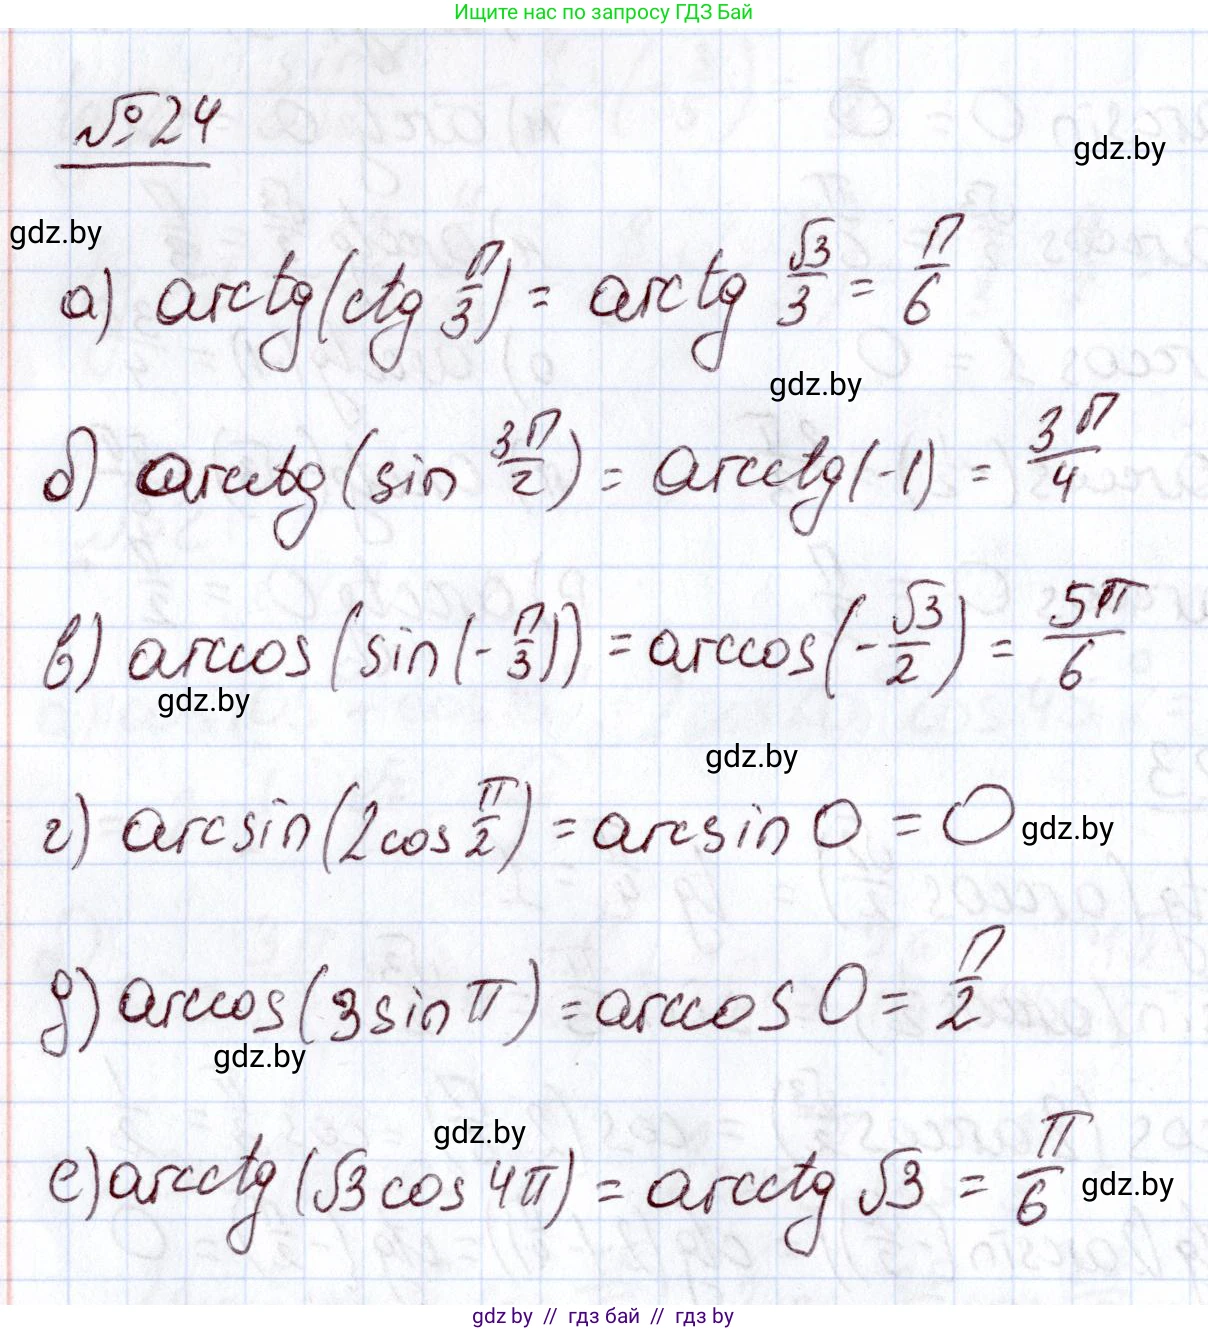 Ищите нас по запросу ГДЗ Бай
№24
gdz.by
gdz.by
а) arctg(ctg π/3) = arctg √3/3 = π/6
gdz.by
б) arcctg(sin 3π/2) = arcctg(-1) = 3π/4
в) arccos(sin(-π/3)) = arccos(-√3/2) = 5π/6
gdz.by
gdz.by
г) arcsin(2cos π/2) = arcsin 0 = 0
gdz.by
д) arccos(3sin π) = arccos 0 = π/2
gdz.by
gdz.by
е) arcctg(√3 cos 4π) = arcctg √3 = π/6
gdz.by
gdz.by // гдз бай // гдз by